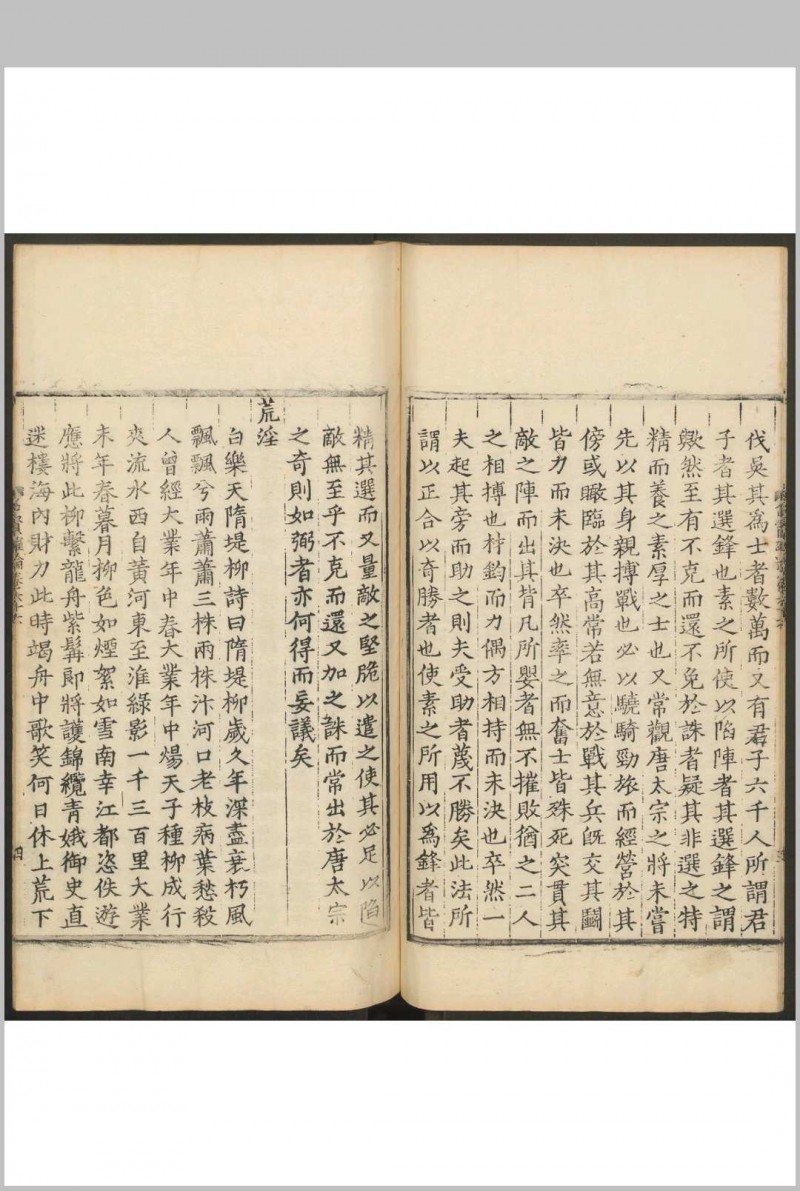 伐吳其為士者數萬而又有君子六千人所謂君
子者其選鋒也素之所使以陷陣者其選鋒之謂
歟然至有不克而還不免於誅者疑其非選之特
精而養之素厚之士也又常觀唐太宗之將未嘗
先以其身親搏戰也必以驍騎勁旅而經營於其
傍或瞰臨於其高常若無意於戰其兵既交其鬬
皆力而未決也卒然率之而奮士皆殊死突貫其
敵之陣而出其背凡所嬰者無不摧敗猶之二人
之相搏也材鈞而力偶方相持而未決也卒然一
夫起其旁而助之則夫受助者蔑不勝矣此法所
謂以正合以奇勝者也使素之所用以為鋒者皆
精其選而又量敵之堅脆以遣之使其必足以陷
敵無至乎不克而還又加之誅而常出於唐太宗
之奇則如弼者亦何得而妄議矣
荒淫
白樂天隋堤柳詩曰隋堤柳歲久年深盡衰朽風
飄飄兮雨蕭蕭三株兩株汴河口老枝病葉愁殺
人曾經大業年中春大業年中煬天子種柳成行
夾流水西自黃河東至淮綠影一千三百里大業
末年春暮月柳色如煙絮如雪南幸江都恣佚遊
應將此柳繫龍舟紫髯郎將護錦纜青娥御史直
迷樓海內財力此時竭舟中歌笑何日休上荒下
四